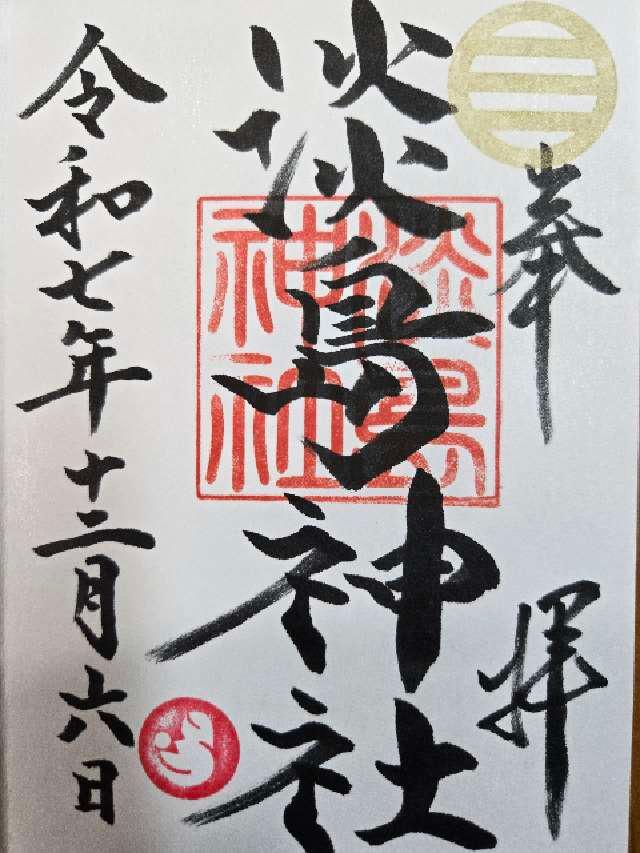 奉拝
淡島神社
淡島神社
令和七年十二月六日